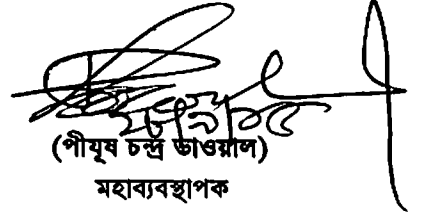 (পীযূষ চন্দ্র ডাওয়াল)
মহাব্যবস্থাপক